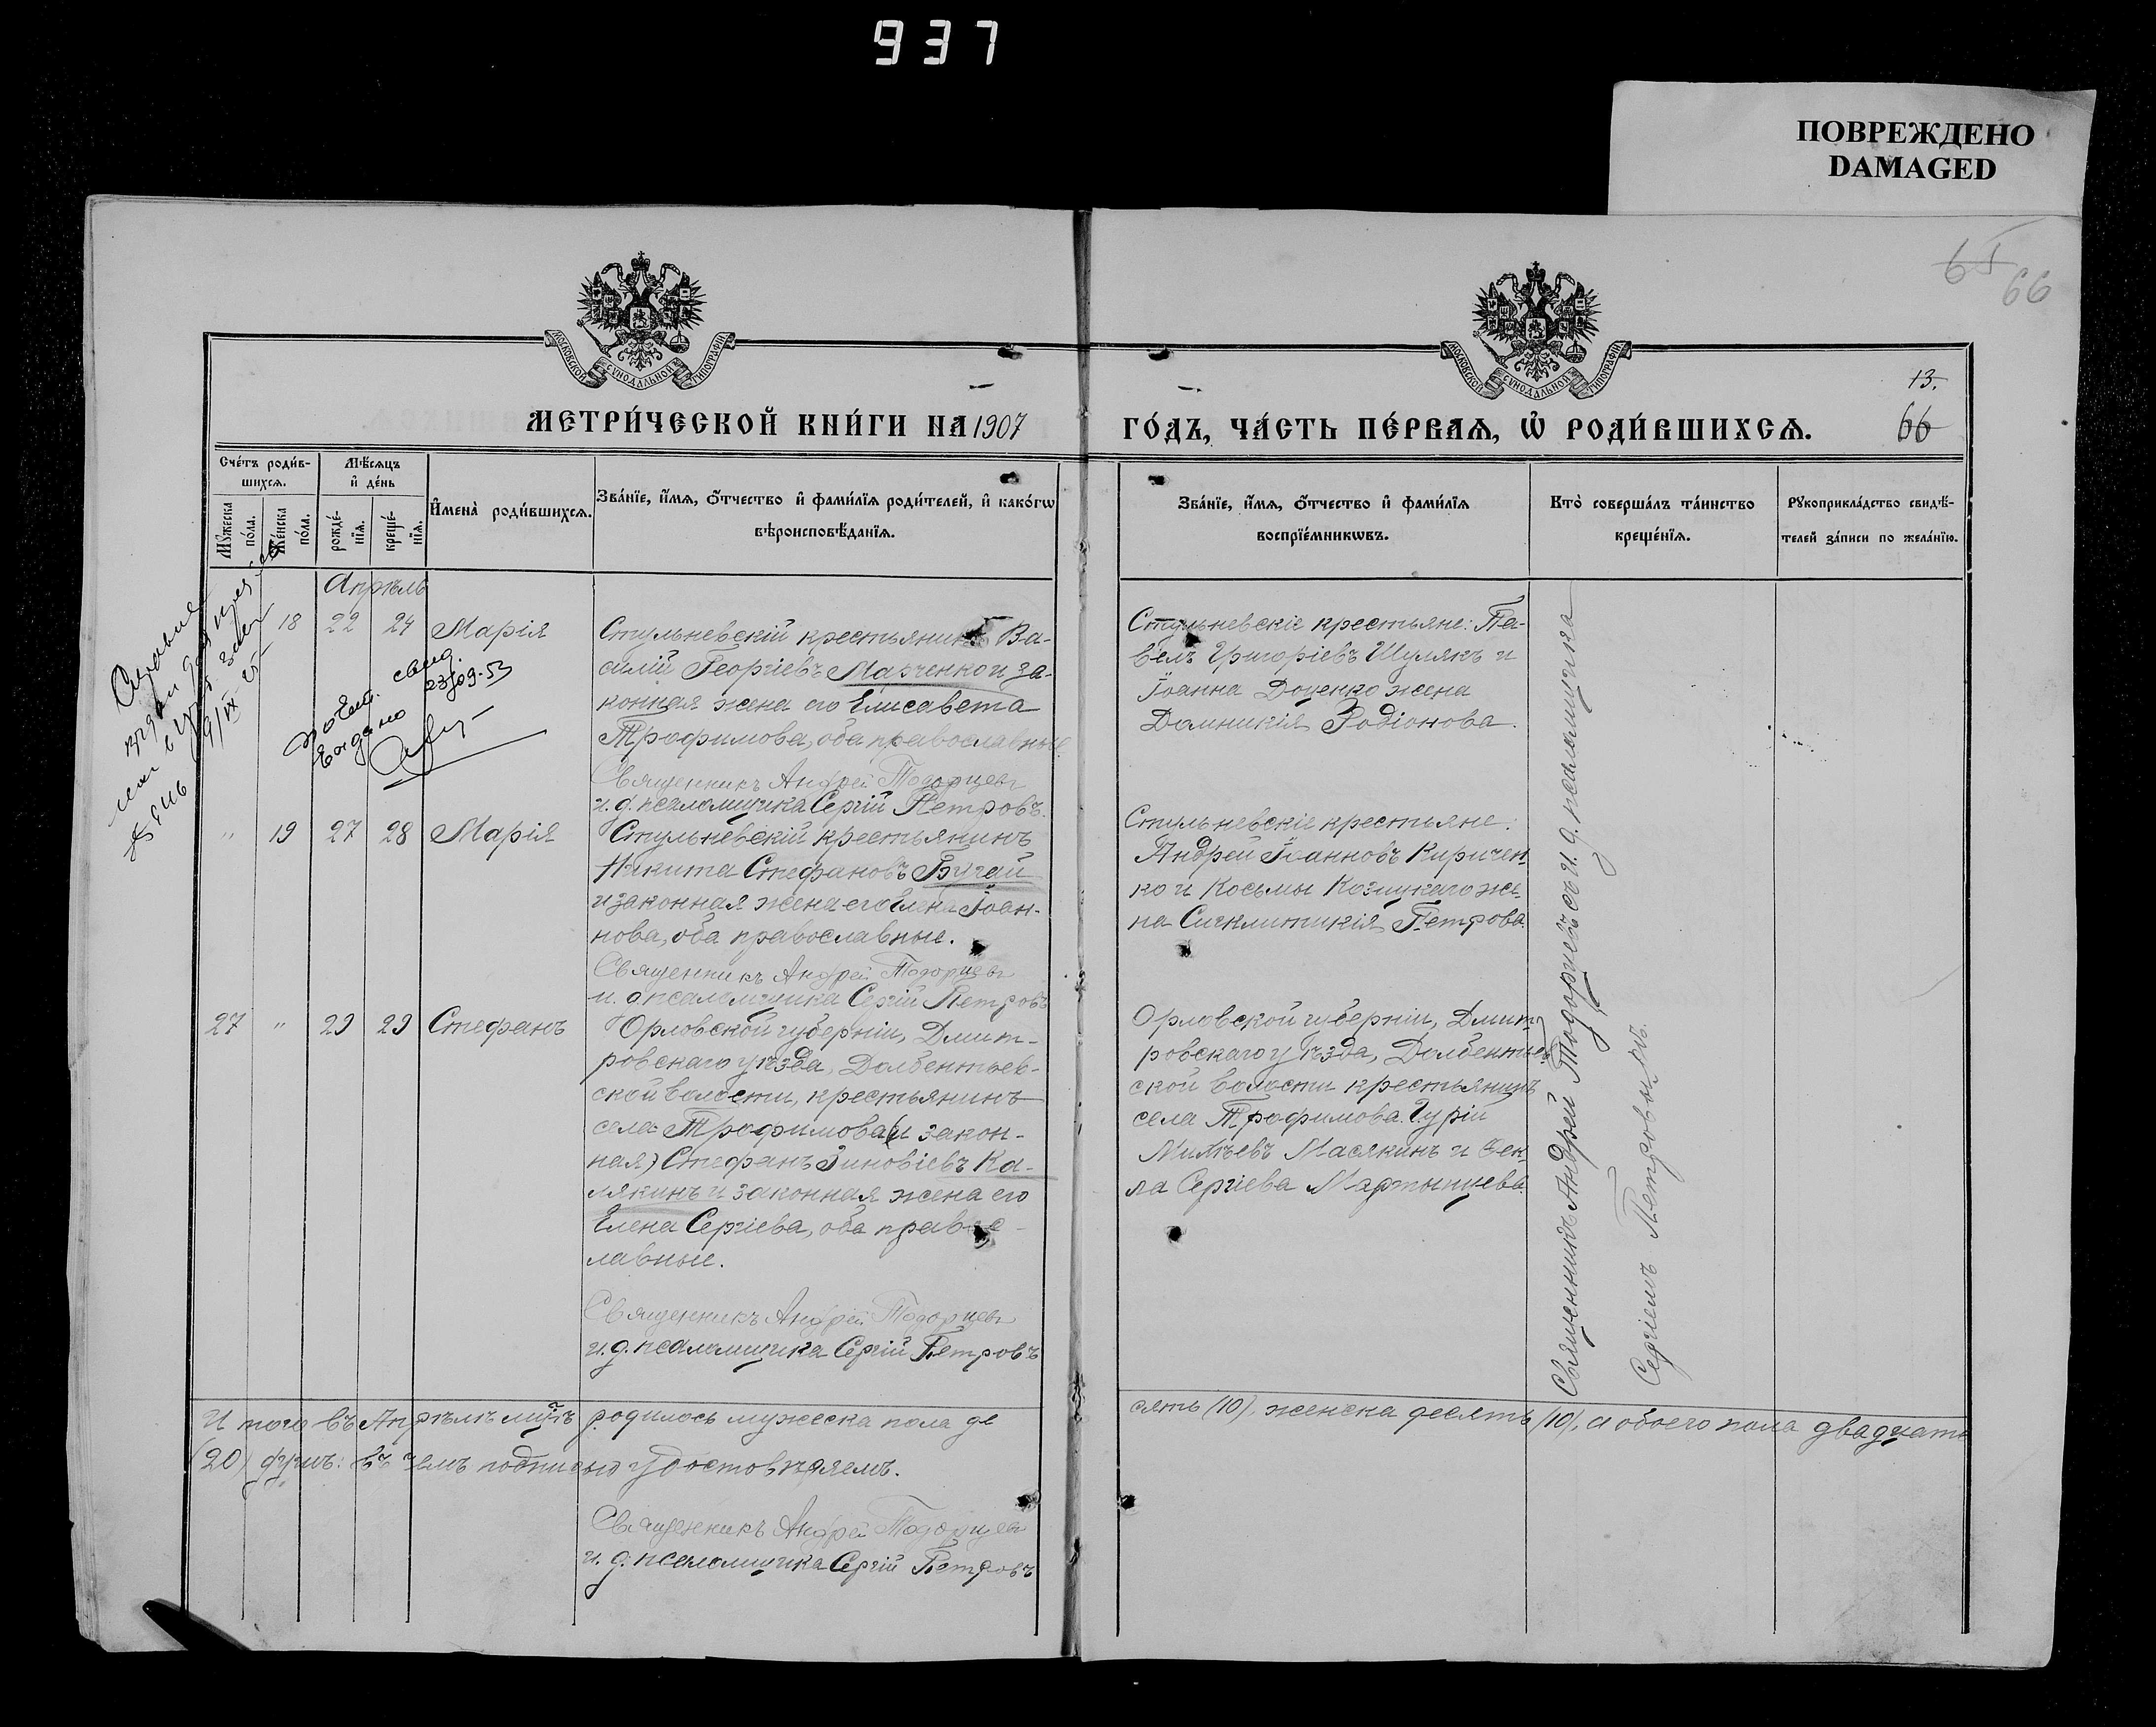 937
ПОВРЕЖДЕНО
DAMAGED
65
66
МОСКОВСКОЙ СѴНОДАЛЬНОЙ ТИПОГРАФІИ
МОСКОВСКОЙ СѴНОДАЛЬНОЙ ТИПОГРАФІИ
13.
66
МЕТРИ́ЧЕСКОЙ КНИ́ГИ НА 1907
ГО́ДЪ, ЧА́СТЬ ПЕ́РВАѦ, Ѡ҆ РОДИ́ВШИХСѦ.
Сче́тъ роди́в-
шихсѧ.
Мꙋжеска по́ла.
Же́нска по́ла.
Мѣ́сѧцъ
и҆ де́нь
рожде́-
нїѧ.
креще́-
нїѧ.
И҆мена̀ роди́вшихсѧ.
Зва́нїе, и҆́мѧ, ѻ҆́тчество и҆ фами́лїѧ роди́телей, и҆ како́гѡ
вѣроисповѣ́данїѧ.
Зва́нїе, и҆́мѧ, ѻ҆́тчество и҆ фами́лїѧ
воспрїе́мникѡвъ.
Кто̀ соверша́лъ та́инство
креще́нїѧ.
Рꙋкоприкла́дство свидѣ́-
телей за́писи по жела́нїю.
Апрѣль
18 22 24 Марія
Стульневскій крестьянинъ Ва-
силій Георгіевъ Марченко и за-
конная жена его Елисавета
Трофимова, оба православные
Священникъ Андрей Тодорцевъ
и. д. псаломщика Сергій Петровъ.
Стульневскіе крестьяне: Па-
велъ Григоріевъ Шулякъ и
Іоанна Доценко жена
Домникія Родіонова.
" 19 27 28 Марія
Стульневскій крестьянинъ
Никита Стефановъ Бугай
и законная жена его Елена Іоан-
нова, оба православные.
Священникъ Андрей Тодорцевъ
и. д. псаломщика Сергій Петровъ
Стульневскіе крестьяне:
Андрей Іоанновъ Киричен-
ко и Косьмы Козицкаго же-
на Сигклитикія Петрова.
27 " 29 29 Стефанъ
Орловской губерніи, Дмит-
ровскаго уѣзда, Долбентьев-
ской волости, крестьянинъ
села Трофимова (и закон-
ная) Стефанъ Зиновіевъ Ка-
лякинъ и законная жена его
Елена Сергіева, оба правос-
лавные.
Священникъ Андрей Тодорцевъ
и. д. псаломщика Сергій Петровъ
Орловской губерніи, Дмит-
ровскаго уѣзда, Долбентьев-
ской волости крестьянинъ
села Трофимова Гурій
Масякинъ и Фек-
ла Сергіева Мартынцева.
Священникъ Андрей Тодорцевъ съ и. д. псаломщика
Сергіемъ Петровымъ.
Итого въ Апрѣлѣ мцѣ родилось мужеска пола де
сять (10), женска десять (10), а обоего пола двадцать
(20) душъ: въ чемъ подписью удостовѣряемъ.
Священникъ Андрей Тодорцевъ
и. д. псаломщика Сергій Петровъ